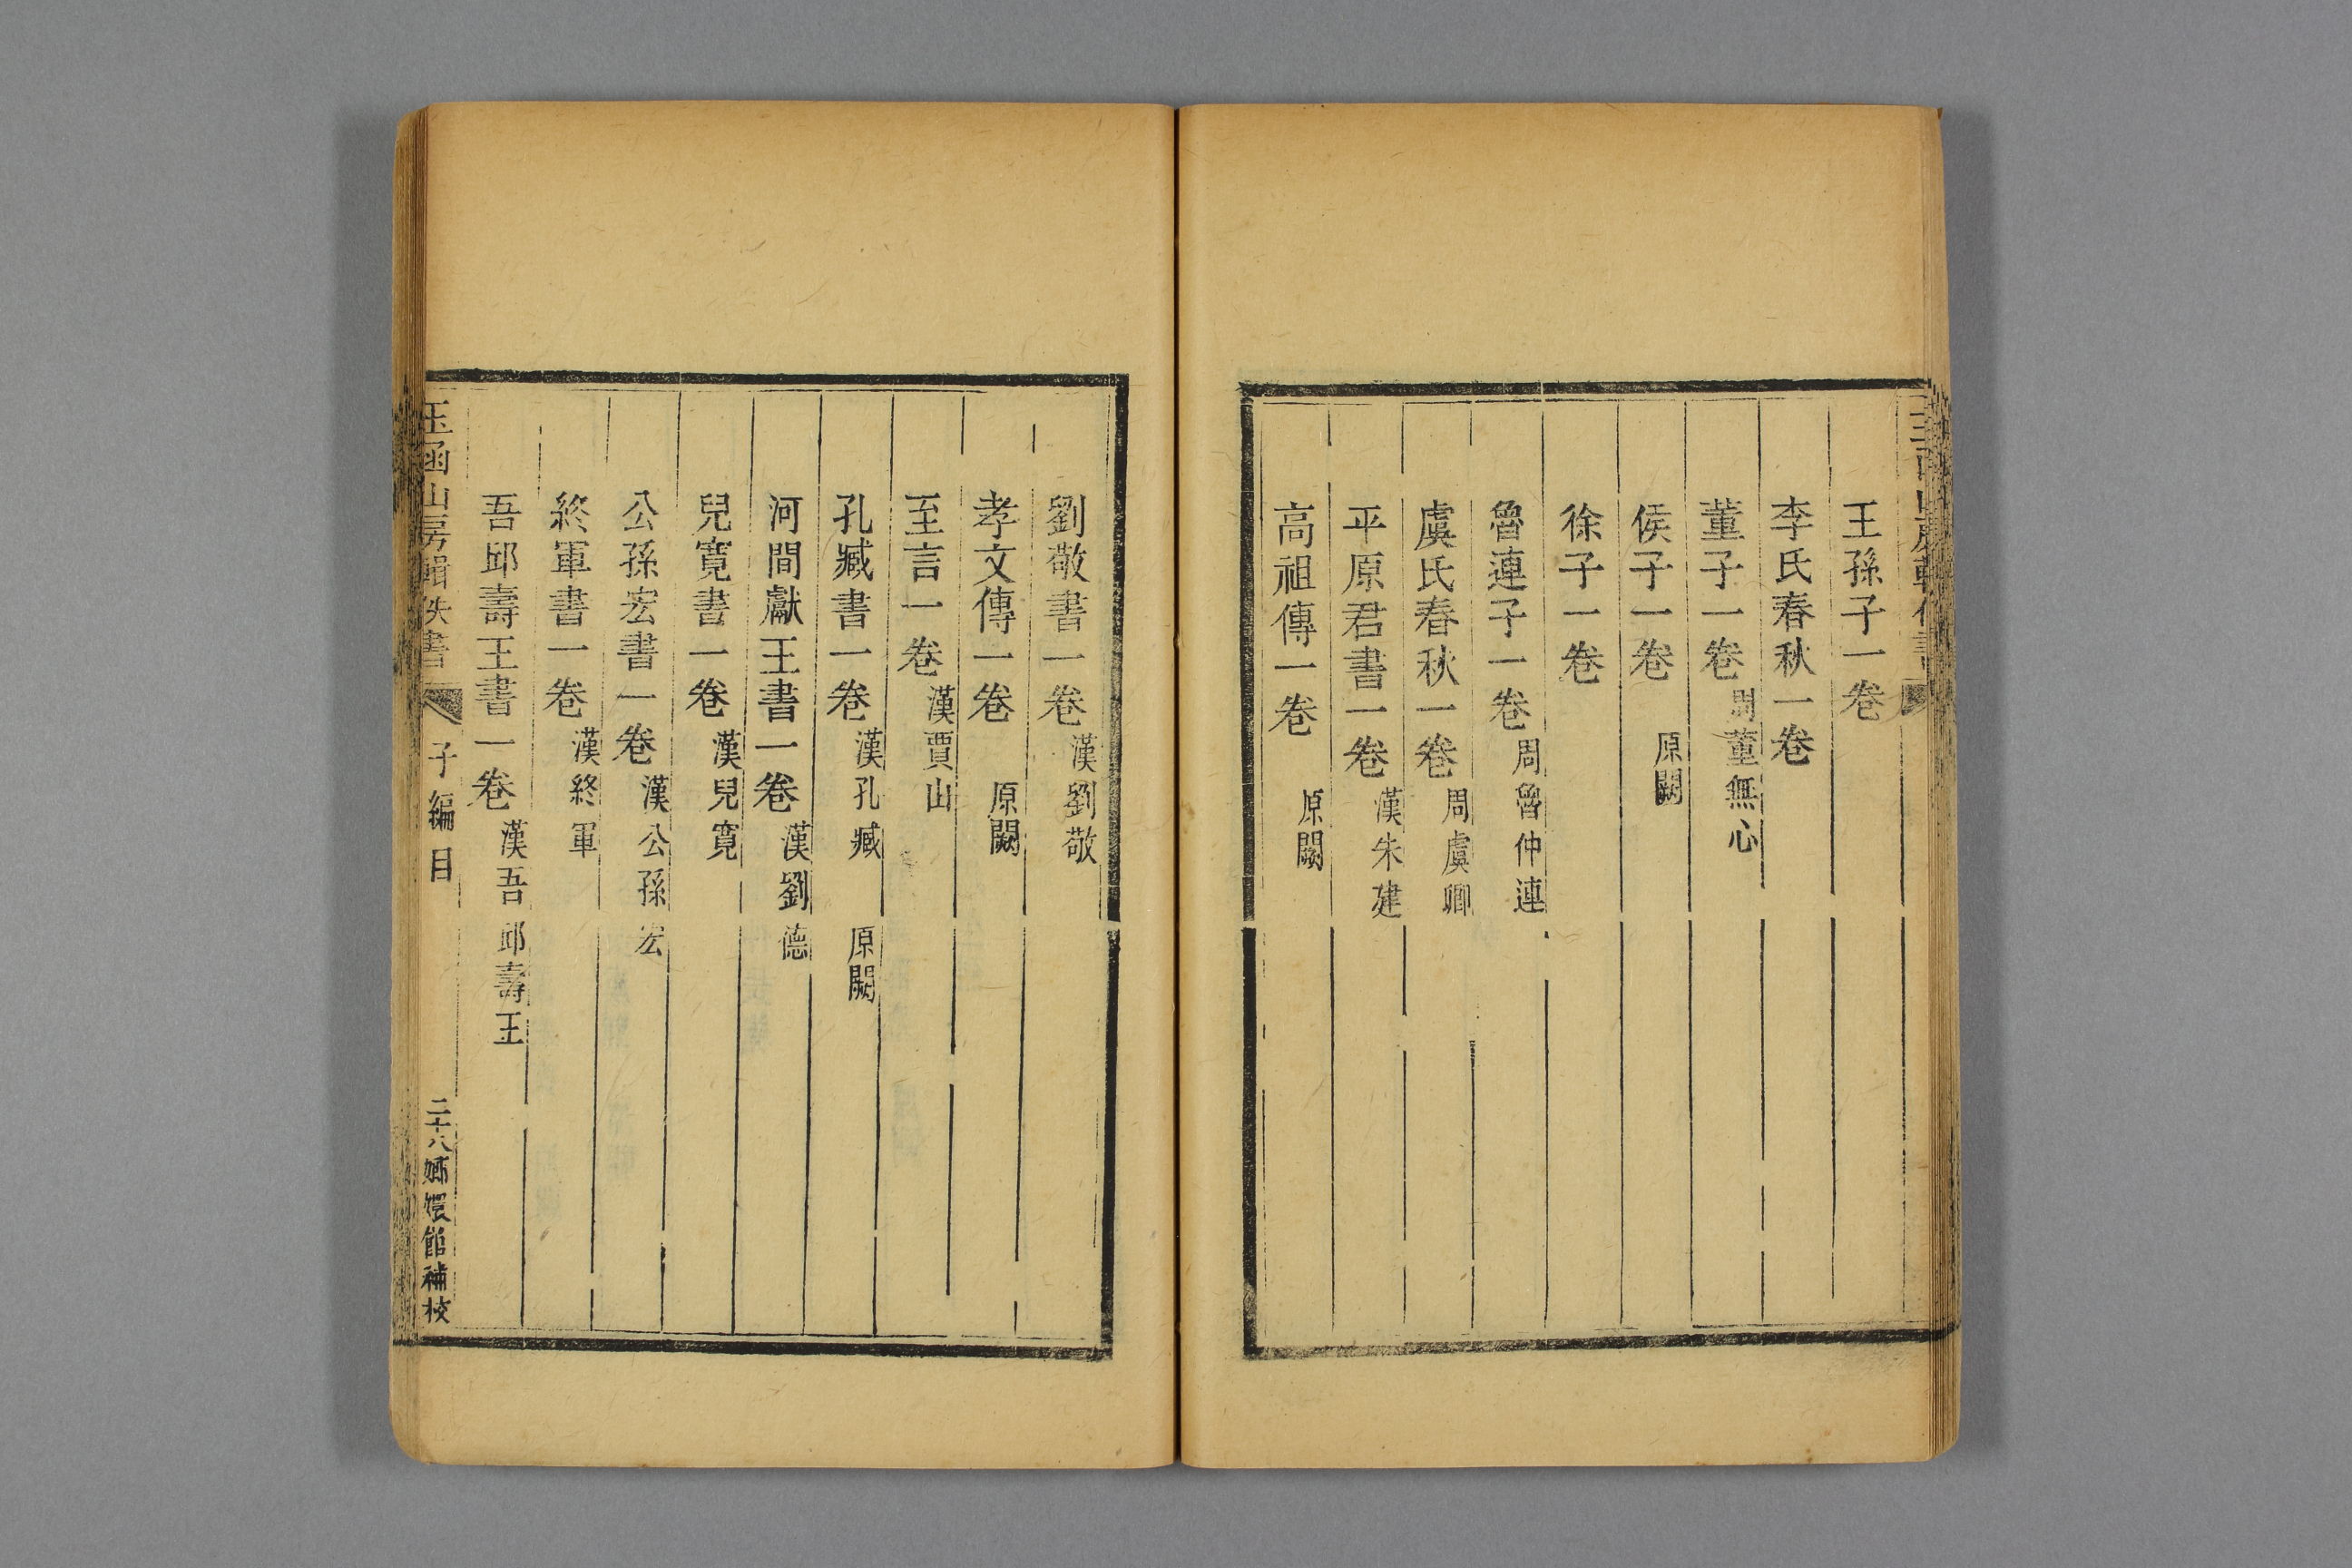 王孫子一卷
李氏春秋一卷
董子一卷 周董無心
侯子一卷 原闕
徐子一卷
魯連子一卷 周魯仲連
虞氏春秋一卷 周虞卿
平原君書一卷 漢朱建
高祖傳一卷 原闕
劉敬書一卷 漢劉敬
孝文傳一卷 原闕
至言一卷 漢賈山
孔臧書一卷 漢孔臧 原闕
河間獻王書一卷 漢劉德
兒寬書一卷 漢兒寬
公孫宏書一卷 漢公孫宏
終軍書一卷 漢終軍
吾邱壽王書一卷 漢吾邱壽王
玉函山房輯佚書 子編目 二十八 嫏嬛館補校